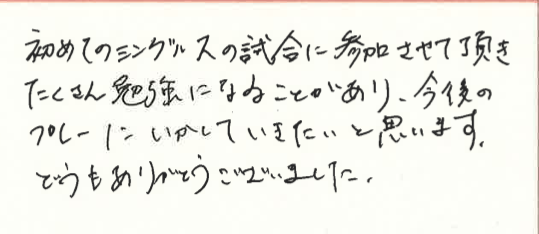 初めてのシングルスの試合に参加させて頂き
たくさん勉強になることがあり、今後の
プレーにいかしていきたいと思います。
どうもありがとうございました。